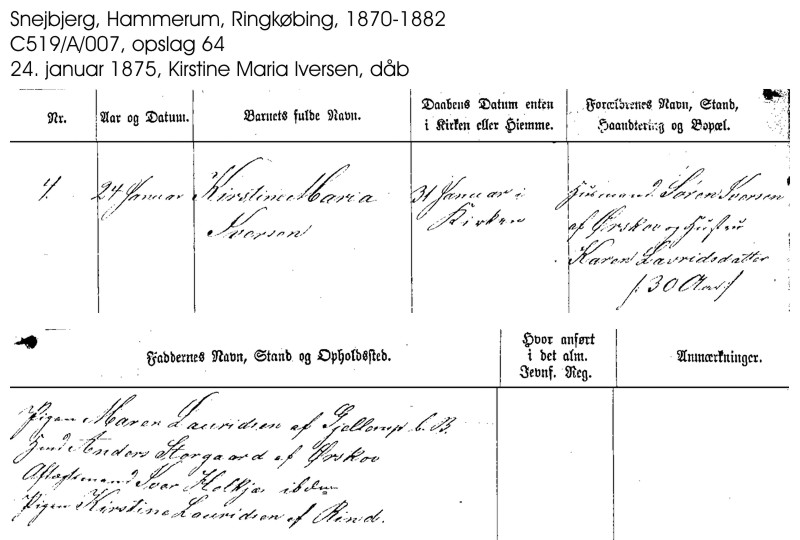 Snejbjerg, Hammerum, Ringkøbing, 1870-1882
C519/A/007, opslag 64
24. januar 1875, Kirstine Maria Iversen, dåb
Nr.
Aar og Datum.
Barnets fulde Navn.
Daabens Datum enten
i Kirken eller Hjemme.
Forældrenes Navn, Stand,
Haandtering og Bopæl.
4.
24 Januar
Kirstine Maria
Iversen
31 Januar i
Kirken
Husmand Søren Iversen
af Ørskov og Hustru
Karen Lauridsdatter
/: 30 Aar :/
Faddernes Navn, Stand og Opholdssted.
Hvor anført
i det alm.
Jevnf. Reg.
Anmærkninger.
Pigen Maren Lauridsen af Gjellerup
Anders Storgaard af Ørskov
Aftægtsmand Iver Holkjær ibdm
Pigen Kirstine Lauridsen af Rind.